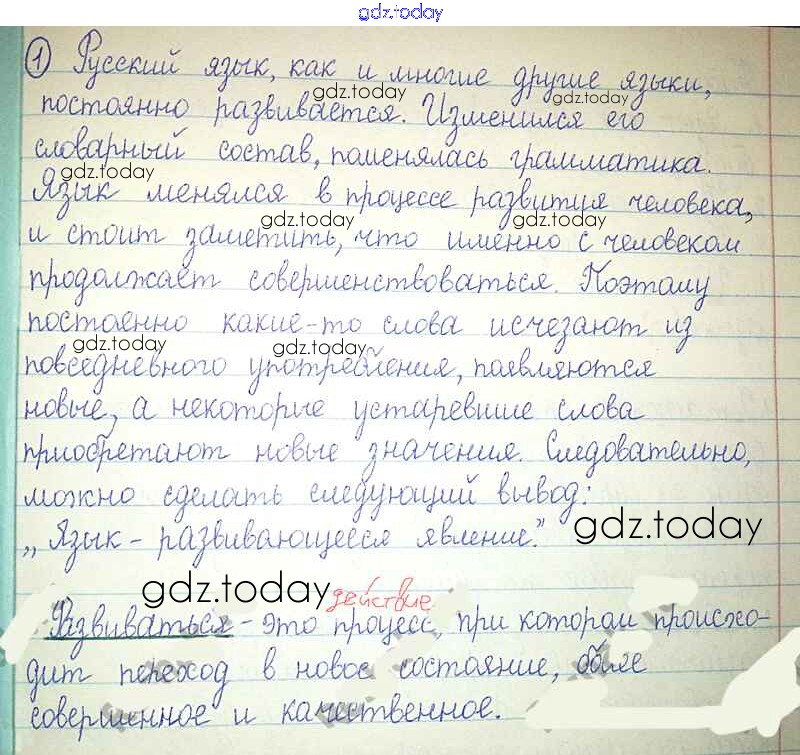 gdz.today
① Русский язык, как и многие другие языки,
gdz.today gdz.today
постоянно развивается. Изменился его
словарный состав, поменялась грамматика.
gdz.today
Язык менялся в процессе развития человека,
gdz.today gdz.today
и стоит заметить, что именно с человеком
продолжает совершенствоваться. Поэтому
постоянно какие-то слова исчезают из
gdz.today gdz.today
повседневного употребления, появляются
новые, а некоторые устаревшие слова
приобретают новые значения. Следовательно,
можно сделать следующий вывод:
„Язык - развивающееся явление".
gdz.today
gdz.today действие
Развиваться - это процесс, при котором происхо-
дит переход в новое состояние, более
совершенное и качественное.